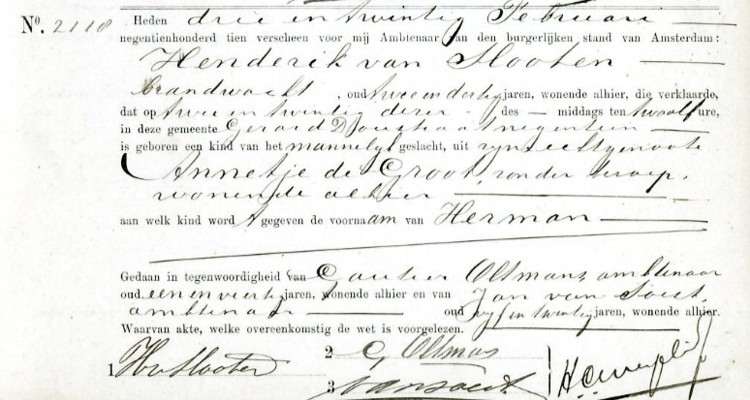 No. 2118 Heden drie en twintig Februari
negentienhonderd tien verscheen voor mij Ambtenaar van den burgerlijken stand van Amsterdam:
Henderik van Slooten
brandwacht, oud twee en dertig jaren, wonende alhier, die verklaarde,
dat op twee en twintig dezer des — middags ten twaalf ure,
in deze gemeente Gerard Doustraat negentien
is geboren een kind van het mannelijk geslacht, uit zijn echtgenoote
Annetje de Groot, zonder beroep,
wonende alhier
aan welk kind word t gegeven de voornaam van Herman
Gedaan in tegenwoordigheid van Oltmans, ambtenaar
oud een en veertig jaren, wonende alhier en van Jan van Soest,
ambtenaar oud vijf en twintig jaren, wonende alhier.
Waarvan akte, welke overeenkomstig de wet is voorgelezen.
1 HvSlooten 2 G Oltmans
3 vansoest